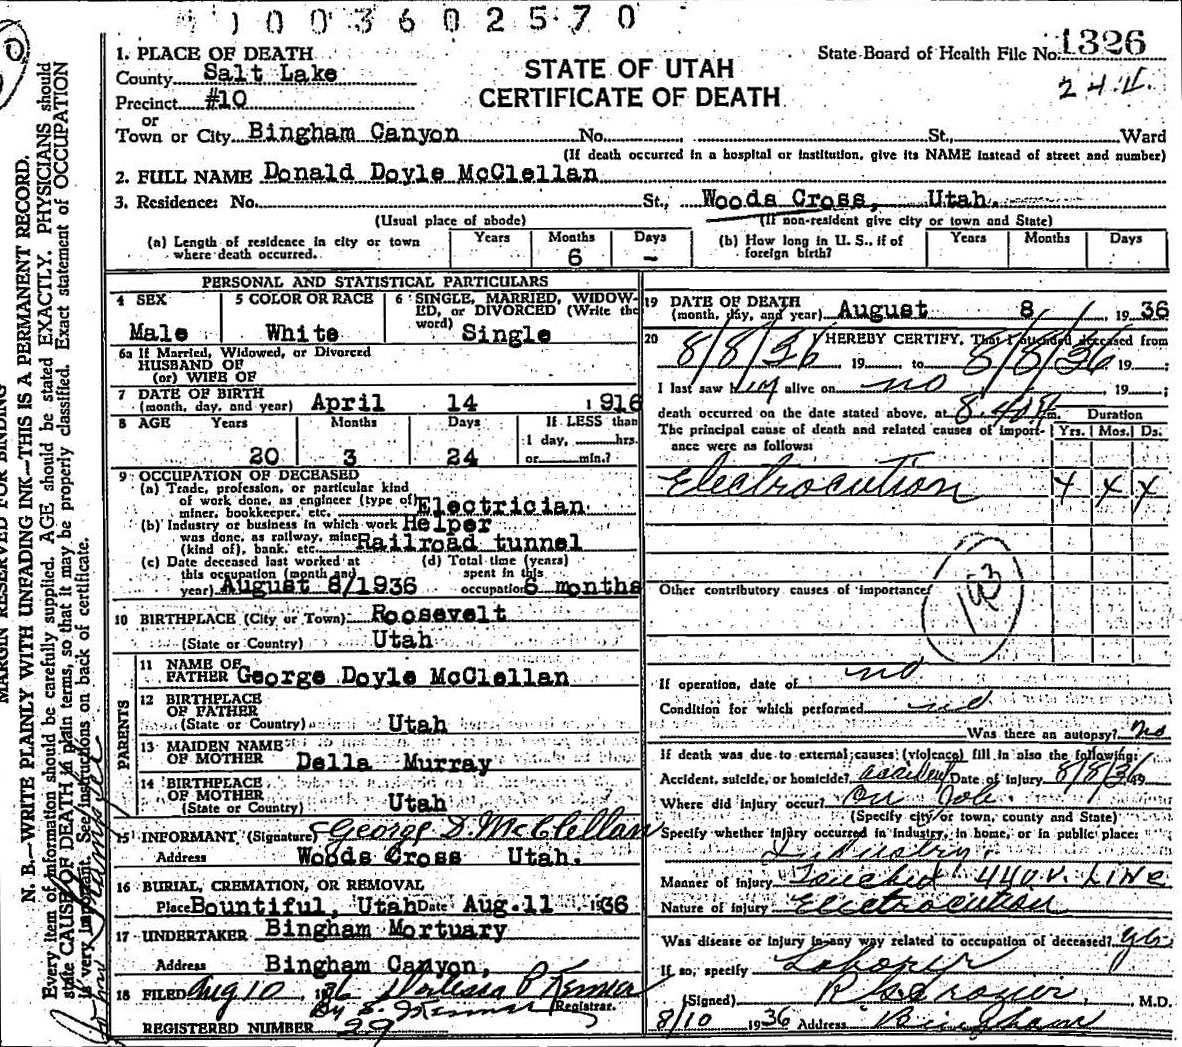 1003602570
1. PLACE OF DEATH
State Board of Health File No. 1326
County Salt Lake
STATE OF UTAH
24
Precinct #10
CERTIFICATE OF DEATH
or
Town or City Bingham Canyon No. St., Ward
(If death occurred in a hospital or institution, give its NAME instead of street and number)
2. FULL NAME Donald Doyle McClellan
3. Residence: No. St., Woods Cross, Utah.
(Usual place of abode) (If non-resident give city or town and State)
(a) Length of residence in city or town where death occurred. Years Months 6 Days -
(b) How long in U. S., if of foreign birth? Years Months Days
PERSONAL AND STATISTICAL PARTICULARS
4 SEX Male
5 COLOR OR RACE White
6 SINGLE, MARRIED, WIDOWED, or DIVORCED (Write the word) Single
6a If Married, Widowed, or Divorced
HUSBAND OF
(or) WIFE OF
7 DATE OF BIRTH
(month, day, and year) April 14 1916
8 AGE Years Months Days If LESS than
1 day, hrs.
20 3 24 or min.?
9 OCCUPATION OF DECEASED
(a) Trade, profession, or particular kind
of work done, as engineer (type of)
miner, bookkeeper, etc. Electrician
Helper
(b) Industry or business in which work
was done, as railway, mine
(kind of), bank, etc. Railroad tunnel
(c) Date deceased last worked at
this occupation (month and
year) August 8/1936
(d) Total time (years)
spent in this
occupation 6 months
10 BIRTHPLACE (City or Town) Roosevelt
(State or Country) Utah
PARENTS
11 NAME OF
FATHER George Doyle McClellan
12 BIRTHPLACE
OF FATHER
(State or Country) Utah
13 MAIDEN NAME
OF MOTHER Della Murray
14 BIRTHPLACE
OF MOTHER
(State or Country) Utah
15 INFORMANT (Signature) George D. McClellan
Address Woods Cross Utah.
16 BURIAL, CREMATION, OR REMOVAL
Place Bountiful, Utah Date Aug. 11 1936
17 UNDERTAKER Bingham Mortuary
Address Bingham Canyon,
18 FILED Aug 10, 1936
Registrar.
REGISTERED NUMBER 29
19 DATE OF DEATH
(month, day, and year) August 8, 1936
20 I HEREBY CERTIFY, That I attended deceased from
8/8/36 19 to 8/8/36 19 ;
I last saw him alive on no , 19 ;
death occurred on the date stated above, at 8:40 m. Duration
The principal cause of death and related causes of importance were as follows: Yrs. Mos. Ds.
Electrocution x x x
Other contributory causes of importance:
193
If operation, date of no
Condition for which performed no
Was there an autopsy? no
If death was due to external causes (violence) fill in also the following:
Accident, suicide, or homicide? accident Date of injury 8/8/36 19
Where did injury occur? On Job.
(Specify city or town, county and State)
Specify whether injury occurred in industry, in home, or in public place:
Industry.
Manner of injury Touched 440 V. Line
Nature of injury Electrocution
Was disease or injury in any way related to occupation of deceased? yes
If so, specify Laborer
(Signed) , M.D.
8/10 1936 Address Bingham
MARGIN RESERVED FOR BINDING
N. B.—WRITE PLAINLY WITH UNFADING INK—THIS IS A PERMANENT RECORD.
Every item of information should be carefully supplied. AGE should be stated EXACTLY. PHYSICIANS should
state CAUSE OF DEATH in plain terms, so that it may be properly classified. Exact statement of OCCUPATION
is very important. See instructions on back of certificate.